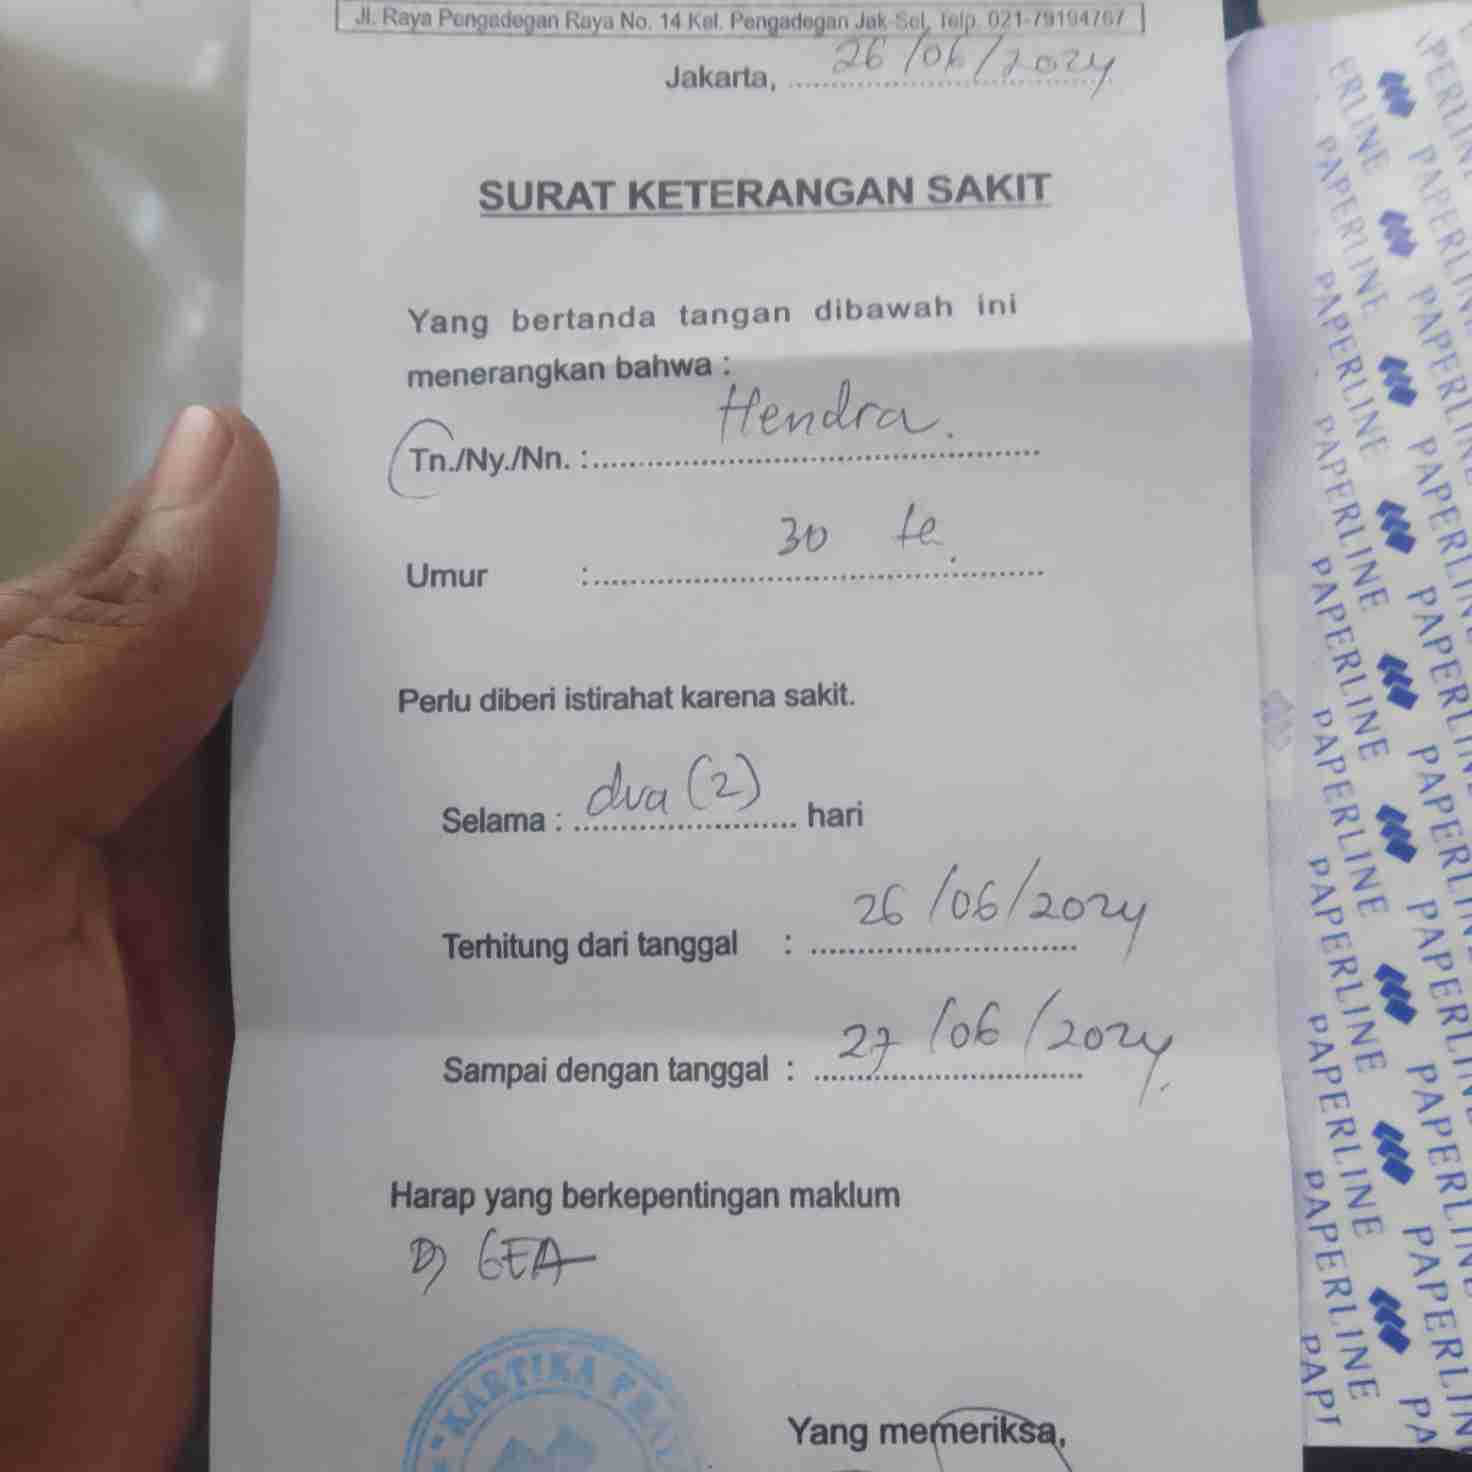 Jl. Raya Pengadegan Raya No. 14 Kel. Pengadegan Jak-Sel, Telp. 021-79194767
Jakarta, 26/06/2024
SURAT KETERANGAN SAKIT
Yang bertanda tangan dibawah ini
menerangkan bahwa :
Tn./Ny./Nn. : Hendra.
Umur : 30
Perlu diberi istirahat karena sakit.
Selama : dua (2) hari
Terhitung dari tanggal : 26/06/2024
Sampai dengan tanggal : 27/06/2024
Harap yang berkepentingan maklum
D) GEA
KARTIKA
Yang memeriksa,
PAPERLINE PAPERLINE PAPERLINE PAPERLINE PAPERLINE PAPERLINE PAPERLINE PAPERLINE